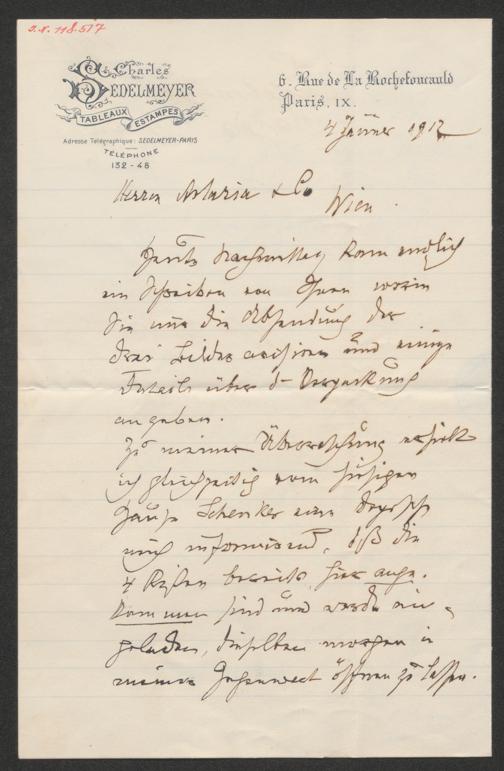 J.N. 118.517
Charles
SEDELMEYER
TABLEAUX
ESTAMPES
Adresse Télégraphique: SEDELMEYER-PARIS
TÉLÉPHONE
132-48
6. Rue de La Rochefoucauld
Paris, IX.
4 Jänner 1912
Herren Artaria & Co
Wien.
Heute Nachmittag kam endlich
ein Schreiben von Ihnen worin
Sie mir die Absendung der
drei Bilder avisiren und einige
Details über d- Verpackung
angeben.
Zu meiner Überraschung erhielt
ich gleichzeitig vom hiesigen
Hause Schenker eine
mich informirend, daß die
4 Kisten bereits hier ange-
kommen sind und werde ein-
geladen, dieselben morgen in
meiner Gegenwart öffnen zu lassen.